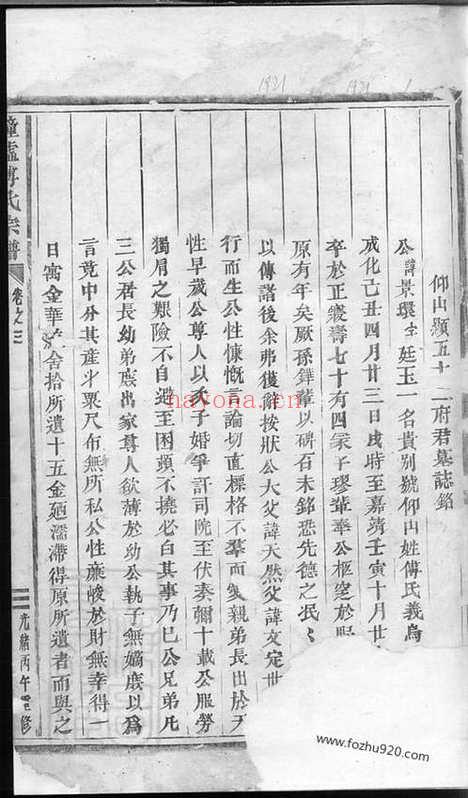 仰山顯五十二府君墓誌銘
公諱景環字廷玉一名貴別號仰山姓傅氏義烏
成化己丑四月廿三日戌時至嘉靖壬寅十月廿
卒於正寢壽七十有四冢子璆輩奉公柩窆於
原有年矣厥孫鏵輩以碑石未銘恐先德之泯
以傳諸後余弗獲辭按狀公大父諱天然父諱文定世
行而生公性慷慨言論切直標格不羣而親弟長出於天
性早歲公尊人以夭子婚爭訐司院至伏奏彌十載公服勞
獨肩之艱險不自過至困頓不撓必白其事乃已公兄弟凡
三公居長幼弟庶出家尊人欲薄於幼公執子無嫡庶以為
言竟中分其產斗粟尺布無所私公性廉峻於財無幸得一
日寓金華舍拾所遺十五金廼濡滯得原所遺者而與之
傅氏宗譜
卷之三
光緒丙午重修
1921
1921
hayona.com
www.fozhu920.com